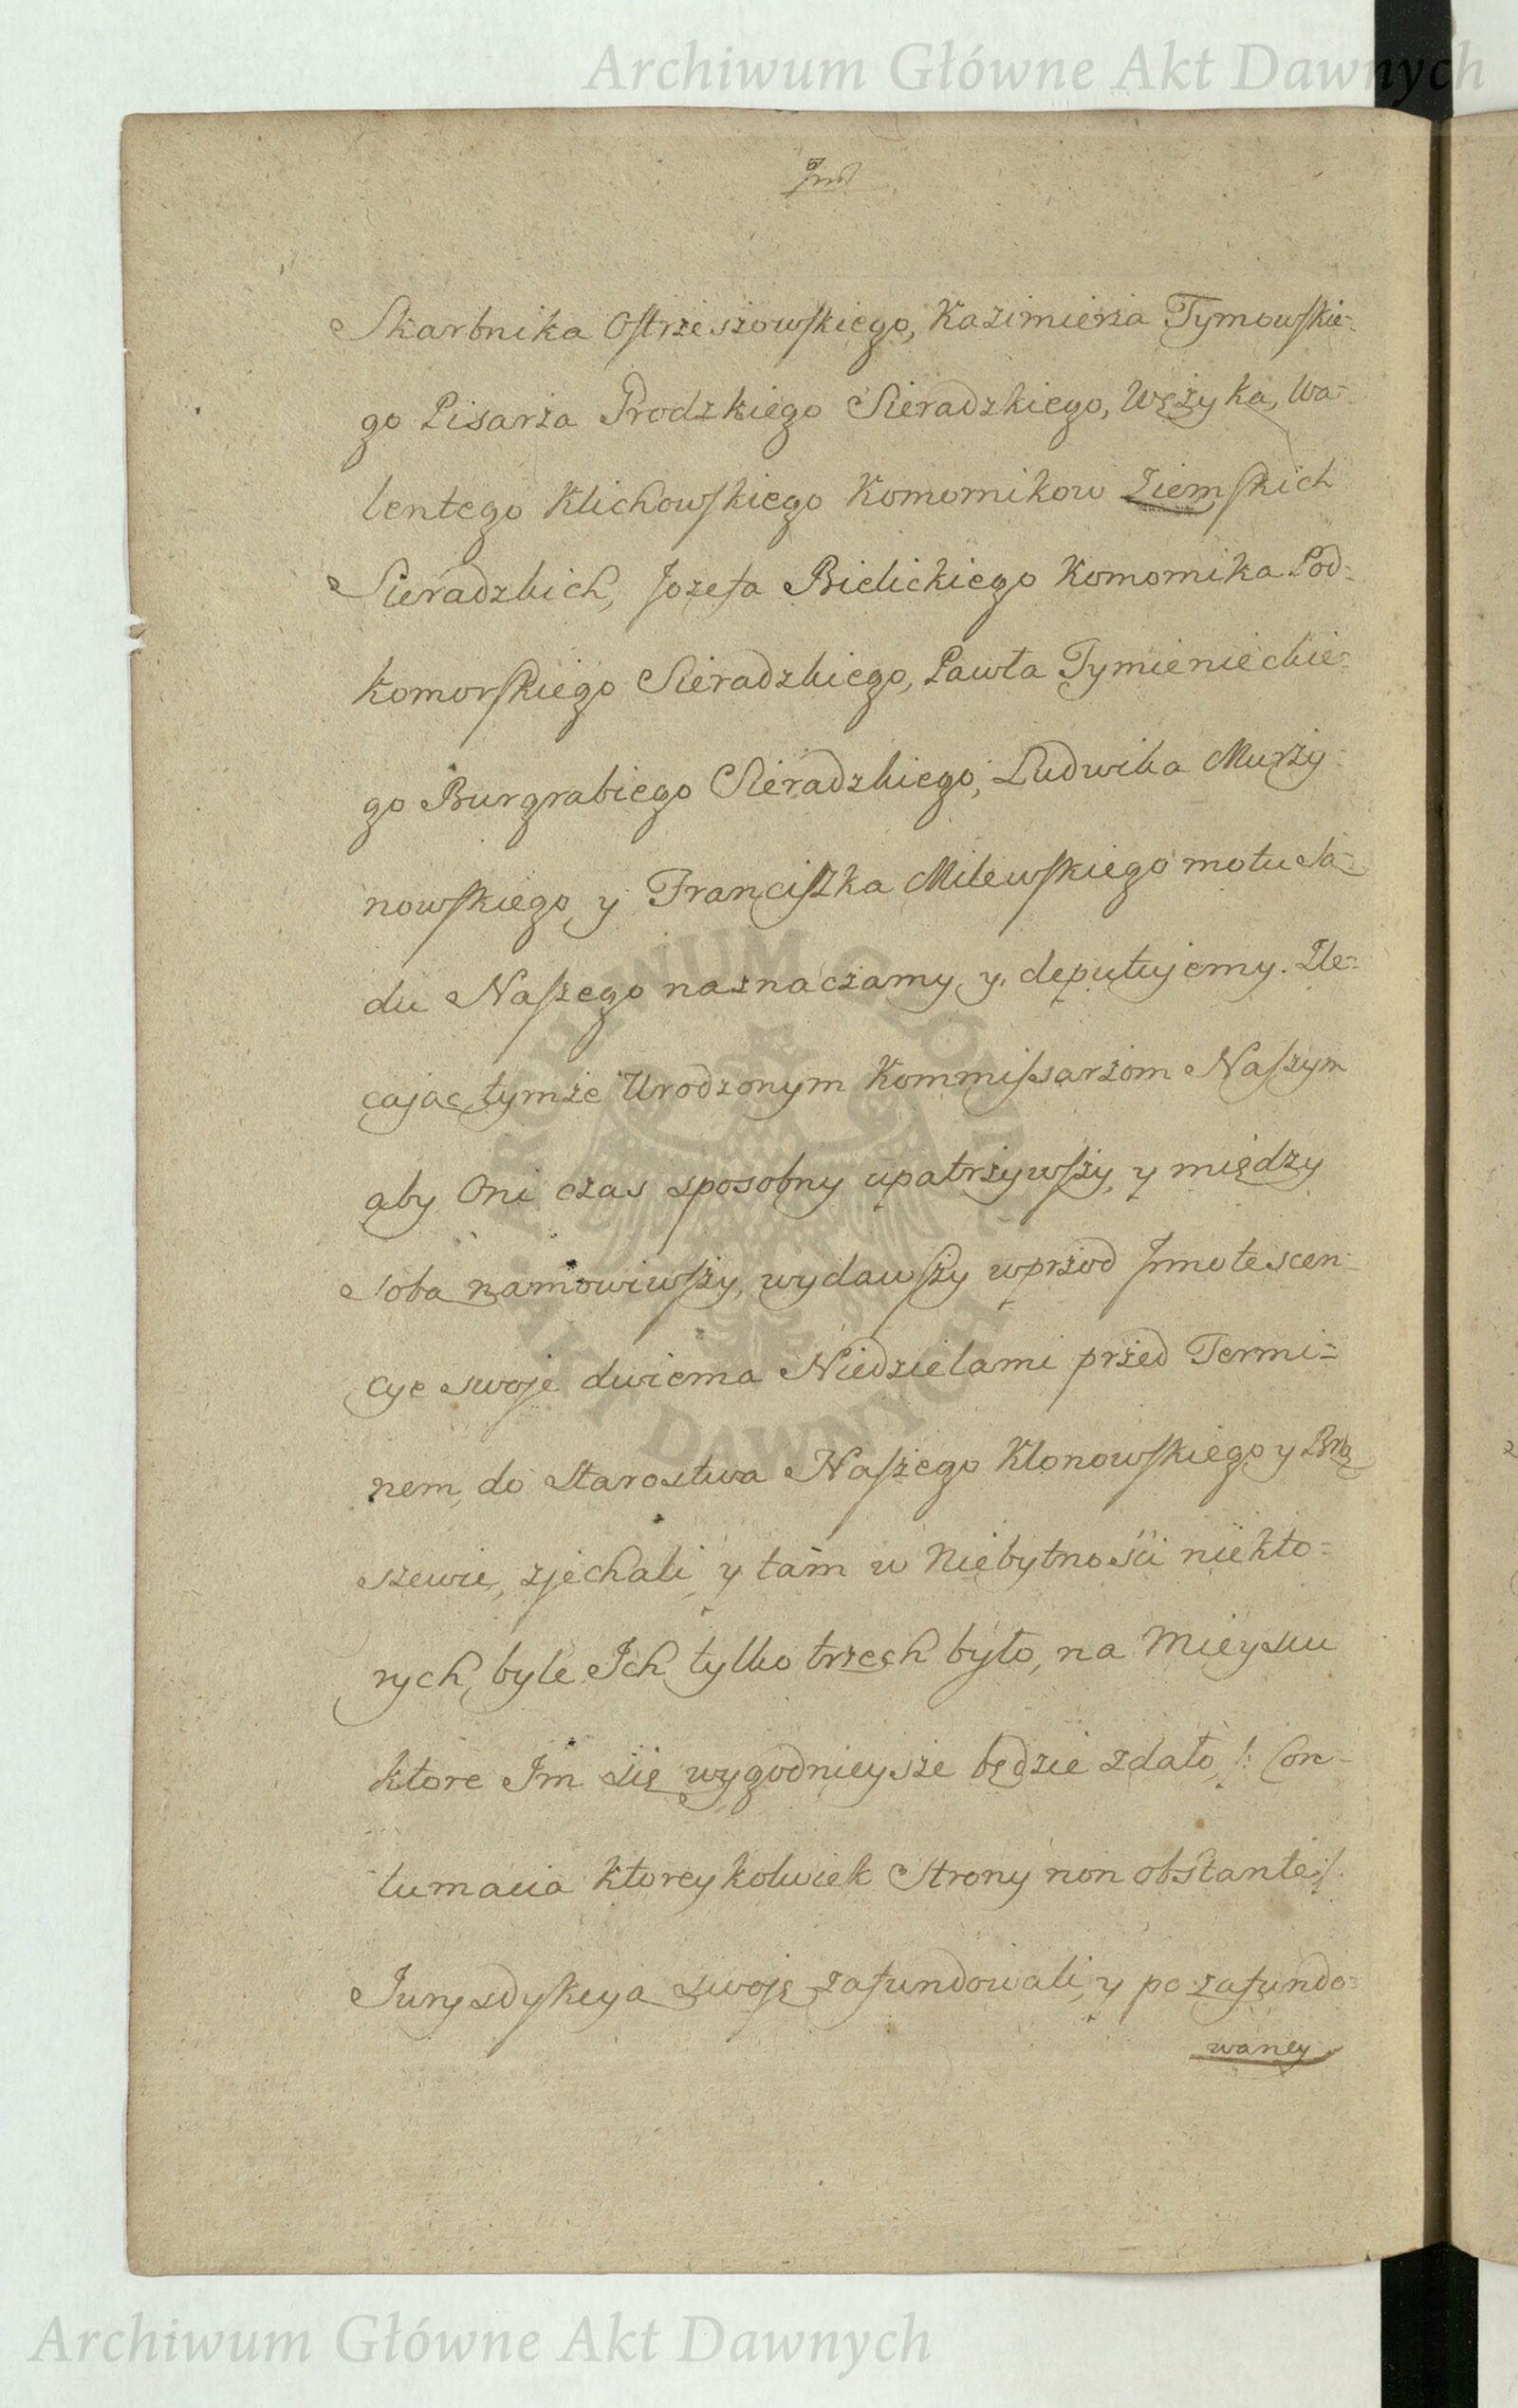 Archiwum Główne Akt Dawnych
Skarbnika Ostrzeszowskiego, Kazimierza Tymowskie=
go Pisarza Grodzkiego Sieradzkiego, Wężyka, Wa=
lentego Klichowskiego Komornikow Ziemskich
Sieradzkich, Jozefa Bielickiego Komornika Pod=
komorskiego Sieradzkiego, Pawła Tymienieckie=
go Burgrabiego Sieradzkiego, Ludwika Murzy=
nowskiego, y Franciszka Milewskiego motu Sa=
du Naszego naznaczamy, y deputujemy. Zle=
caiąc tymże Urodzonym Kommissarzom Naszym
aby Oni czas sposobny upatrzywszy, y między
soba namowiwszy, wydawszy wprzod Jnnotescen=
cye swoje dwiema Niedzielami przed Termi=
nem, do Starostwa Naszego Klonowskiego y Brą
szewic, zjechali, y tam w Niebytności niekto=
rych, byle Ich tylko trzech było, na Mieyscu
ktore Im się wygodnieysze będzie zdało, /: Con=
tumacia ktoreykolwiek Strony non obstante :/
Jurysdykcyą swoję zafundowali, y po zafundo=
waney
ARCHIWUM GŁÓWNE
AKT DAWNYCH
Archiwum Główne Akt Dawnych